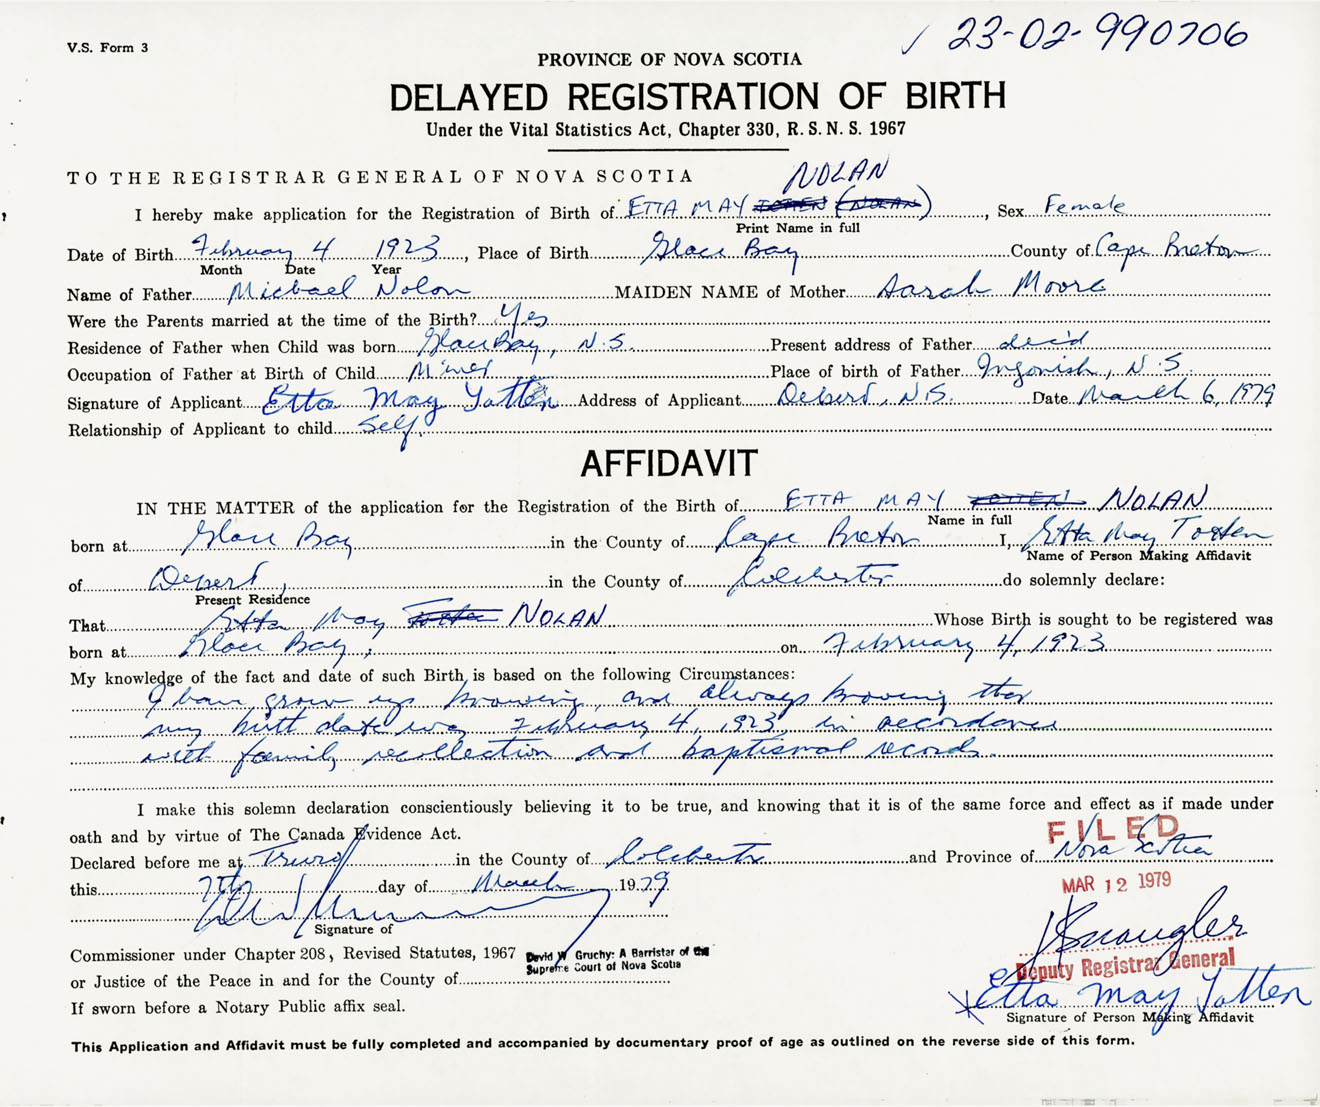 V.S. Form 3
✓ 23-02-990706
PROVINCE OF NOVA SCOTIA
DELAYED REGISTRATION OF BIRTH
Under the Vital Statistics Act, Chapter 330, R.S.N.S. 1967
TO THE REGISTRAR GENERAL OF NOVA SCOTIA
NOLAN
I hereby make application for the Registration of Birth of ETTA MAY TOTTEN (NOLAN), Sex Female
Print Name in full
Date of Birth February 4 1923, Place of Birth Glace Bay County of Cape Breton
Month Date Year
Name of Father Michael Nolon MAIDEN NAME of Mother Sarah Moore
Were the Parents married at the time of the Birth? Yes
Residence of Father when Child was born Glace Bay, N.S. Present address of Father dec'd
Occupation of Father at Birth of Child Miner Place of birth of Father Ingonish, N.S.
Signature of Applicant Etta May Totten Address of Applicant Debert, N.S. Date March 6, 1979
Relationship of Applicant to child Self
AFFIDAVIT
IN THE MATTER of the application for the Registration of the Birth of ETTA MAY TOTTEN NOLAN
Name in full
born at Glace Bay in the County of Cape Breton I, Etta May Totten
Name of Person Making Affidavit
of Debert, in the County of Colchester do solemnly declare:
Present Residence
That Etta May Totten NOLAN Whose Birth is sought to be registered was
born at Glace Bay, on February 4, 1923
My knowledge of the fact and date of such Birth is based on the following Circumstances:
I have grown up knowing, and always knowing that
my birth date was February 4, 1923, in accordance
with family recollection and baptismal records.
I make this solemn declaration conscientiously believing it to be true, and knowing that it is of the same force and effect as if made under
oath and by virtue of The Canada Evidence Act.
FILED
Declared before me at Truro in the County of Colchester and Province of Nova Scotia
this 7th day of March 1979
MAR 12 1979
Signature of
Commissioner under Chapter 208, Revised Statutes, 1967 David W Gruchy: A Barrister of the
Supreme Court of Nova Scotia
Deputy Registrar General
or Justice of the Peace in and for the County of
Etta May Totten
If sworn before a Notary Public affix seal.
Signature of Person Making Affidavit
This Application and Affidavit must be fully completed and accompanied by documentary proof of age as outlined on the reverse side of this form.